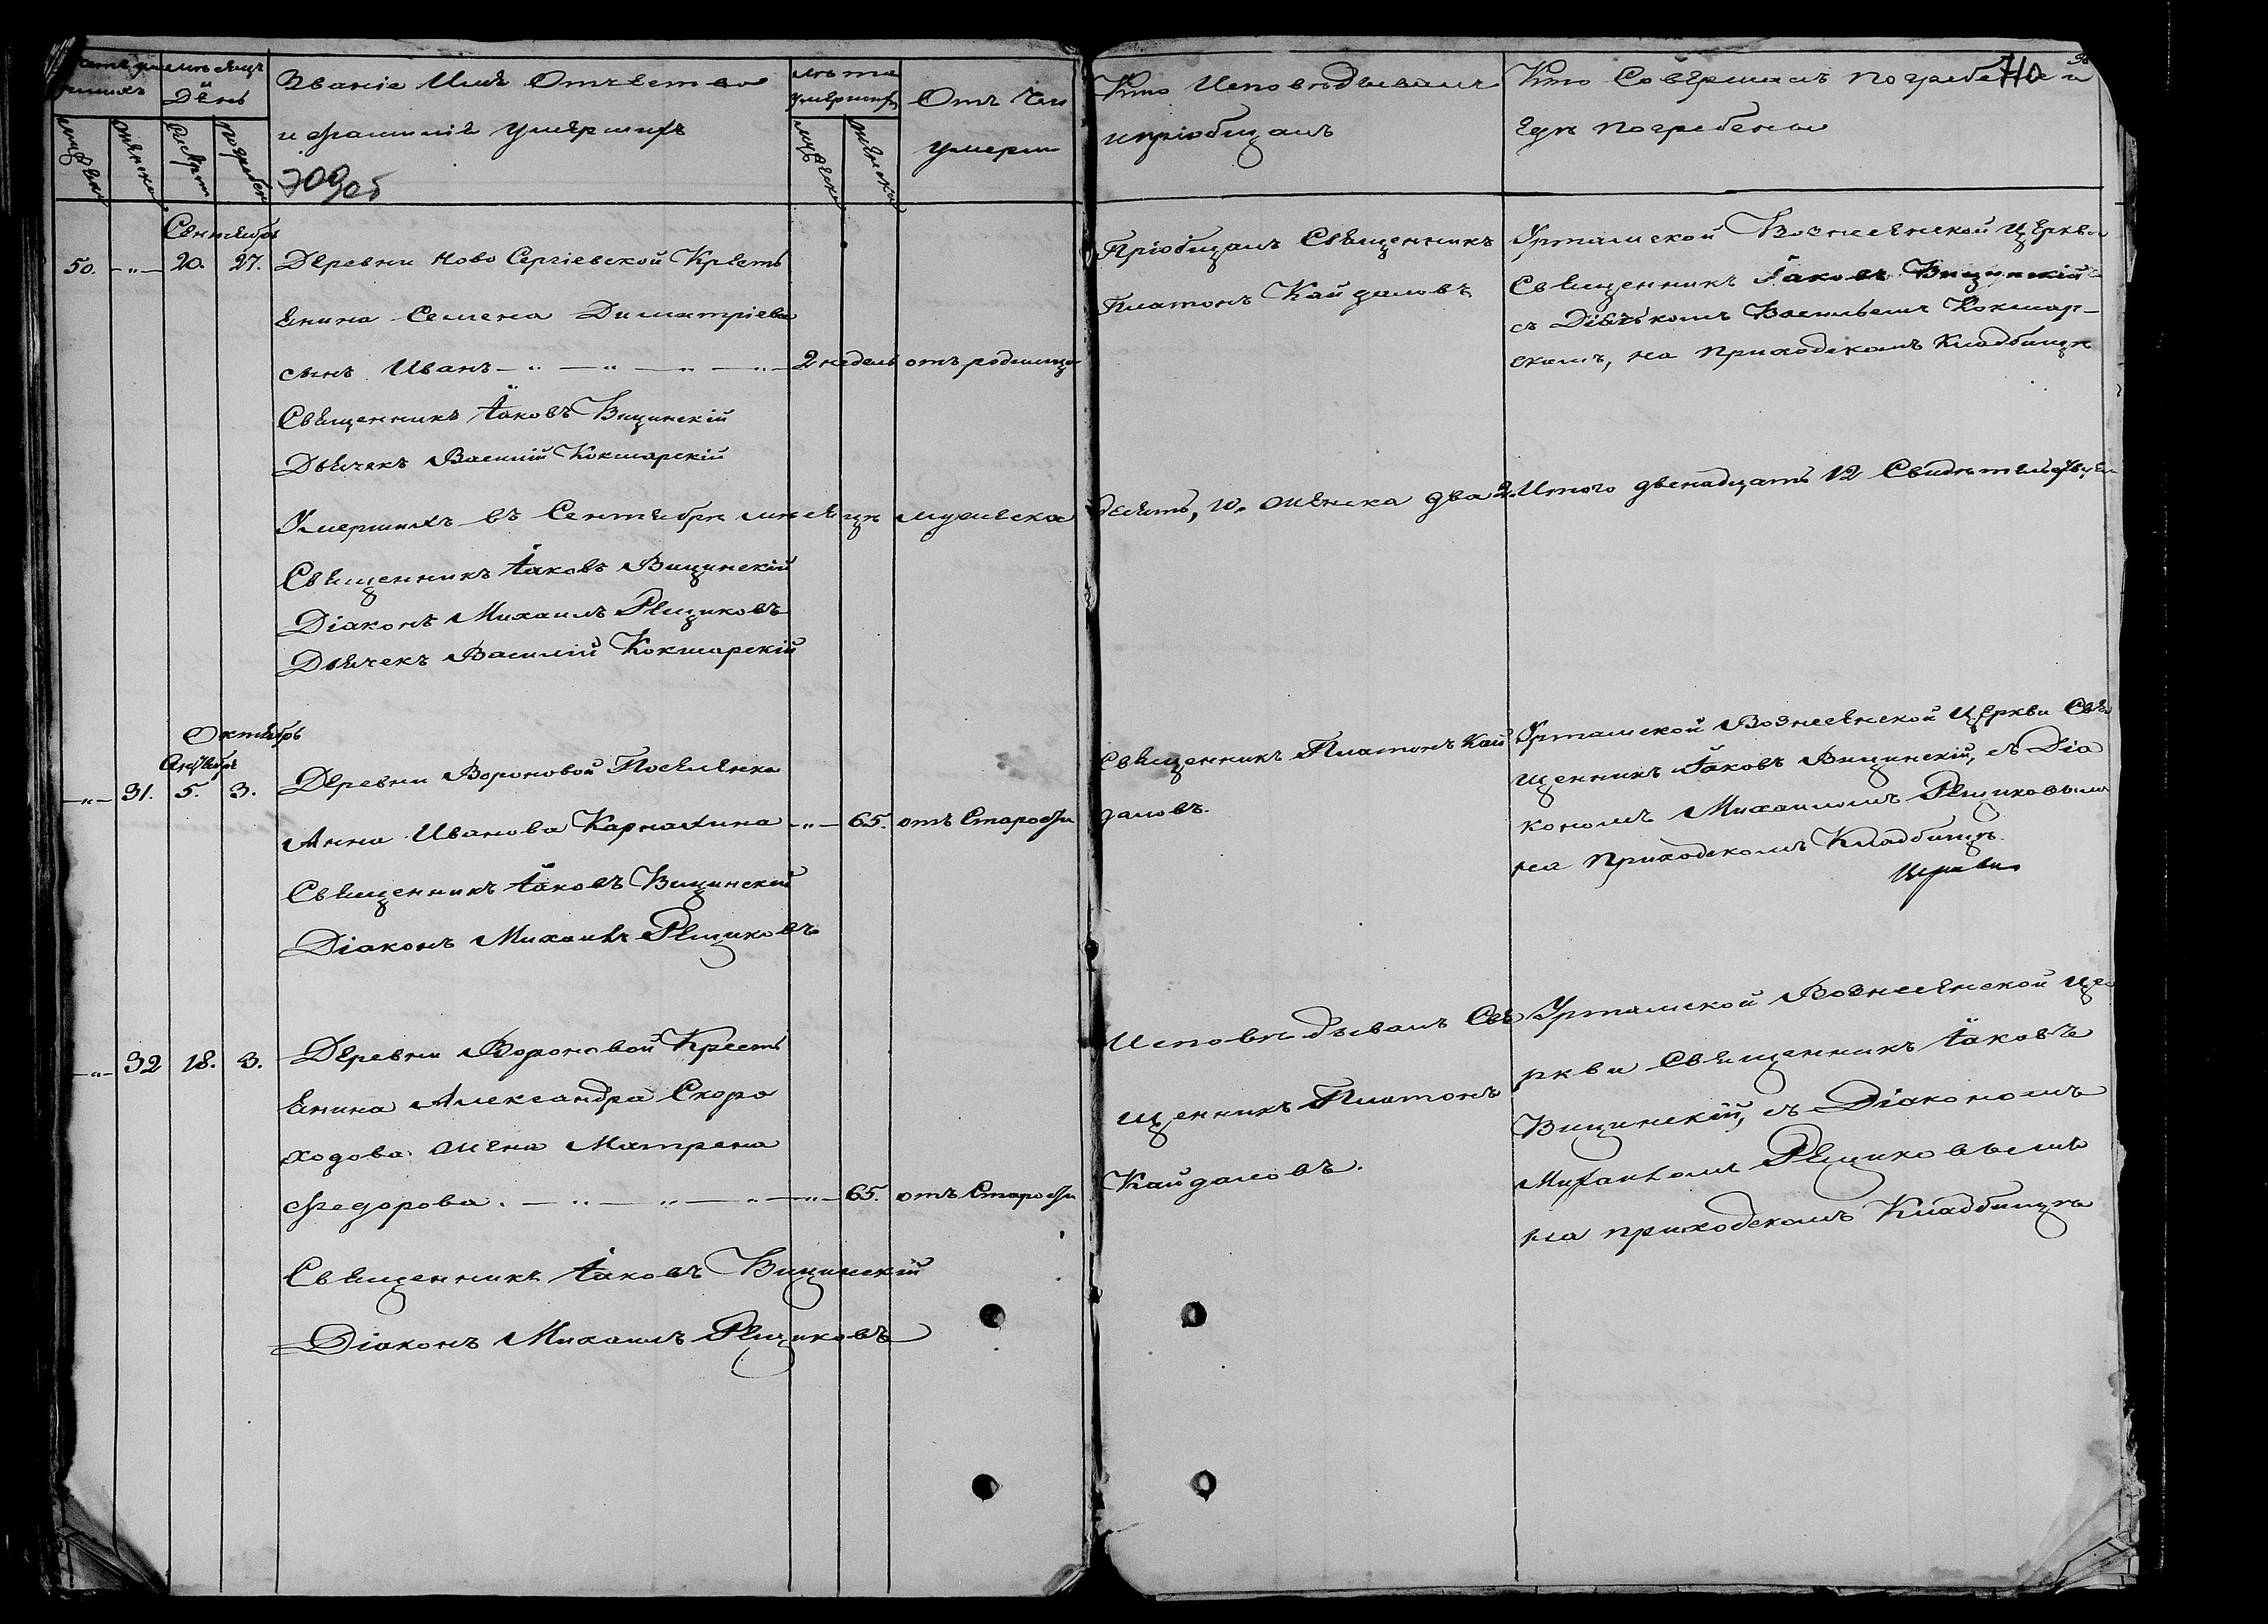 Званіе Имя Отчество
и фамиліе умершихъ
лѣта
умершихъ
Отъ чего
умерли
День
Кто Исповѣдывалъ
и пріобщалъ
Кто Совершилъ погребеніе и
гдѣ погребены
110
Сентябрь
50. -„- 20. 27. Деревни Ново Сергіевской Кресть
янина Семена Димитріева
сынъ Иванъ -„-„-„-„- 2 недель отъ родимца
Священникъ Іаковъ Вицинскій
Дьячекъ Василій Кокшарскій
Пріобщалъ Священникъ
Платонъ Кайдаловъ
Уртамской Вознесенской церкви
Священникъ Іаковъ Вицинскій
съ Дьячкомъ Васильемъ Кокшар-
скимъ, на приходскомъ Кладбищѣ
Умершихъ въ Сентябрѣ мѣсяцѣ мужеска
десять, 10. женска два 2. Итого двенадцать 12
Священникъ Іаковъ Вицинскій
Діаконъ Михаилъ Рещиковъ
Дьячекъ Василій Кокшарскій
Октябрь
-„- 31. 5. 3. Деревни Вороновой Поселенка
Анна Иванова -„- 65. отъ Старости
Священникъ Іаковъ Вицинскій
Діаконъ Михаилъ Рещиковъ
Священникъ Платонъ Кай
даловъ.
Уртамской Вознесенской Церкви Свя
щенникъ Іаковъ Вицинскій, съ Діа
кономъ Михаиломъ Рещиковымъ
на приходскомъ Кладбищѣ.
Церкви
-„- 32 18. 3. Деревни Вороновой Кресть
янина Александра Скоро
ходова жена Матрена
Федорова. -„-„-„-„- 65. отъ Старости
Священникъ Іаковъ Вицинскій
Діаконъ Михаилъ Рещиковъ
Исповѣдывалъ Свя
щенникъ Платонъ
Кайдаловъ.
Уртамской Вознесенской Це
ркви Священникъ Іаковъ
Вицинскій, съ Діакономъ
Михаиломъ Рещиковымъ
на приходскомъ Кладбищѣ